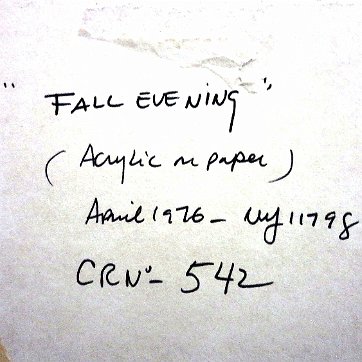 "FALL EVENING"
(Acrylic on paper)
April 1976 - NY 11798
CRNº- 542